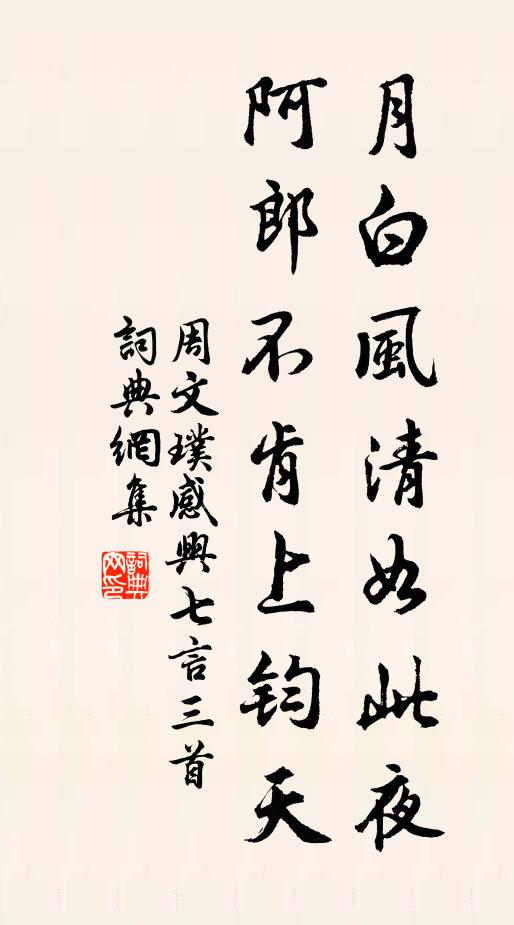 月白風清如此夜
阿郎不肯上鈞天
周文璞感興七言三首
詞典網集
詞典
网印